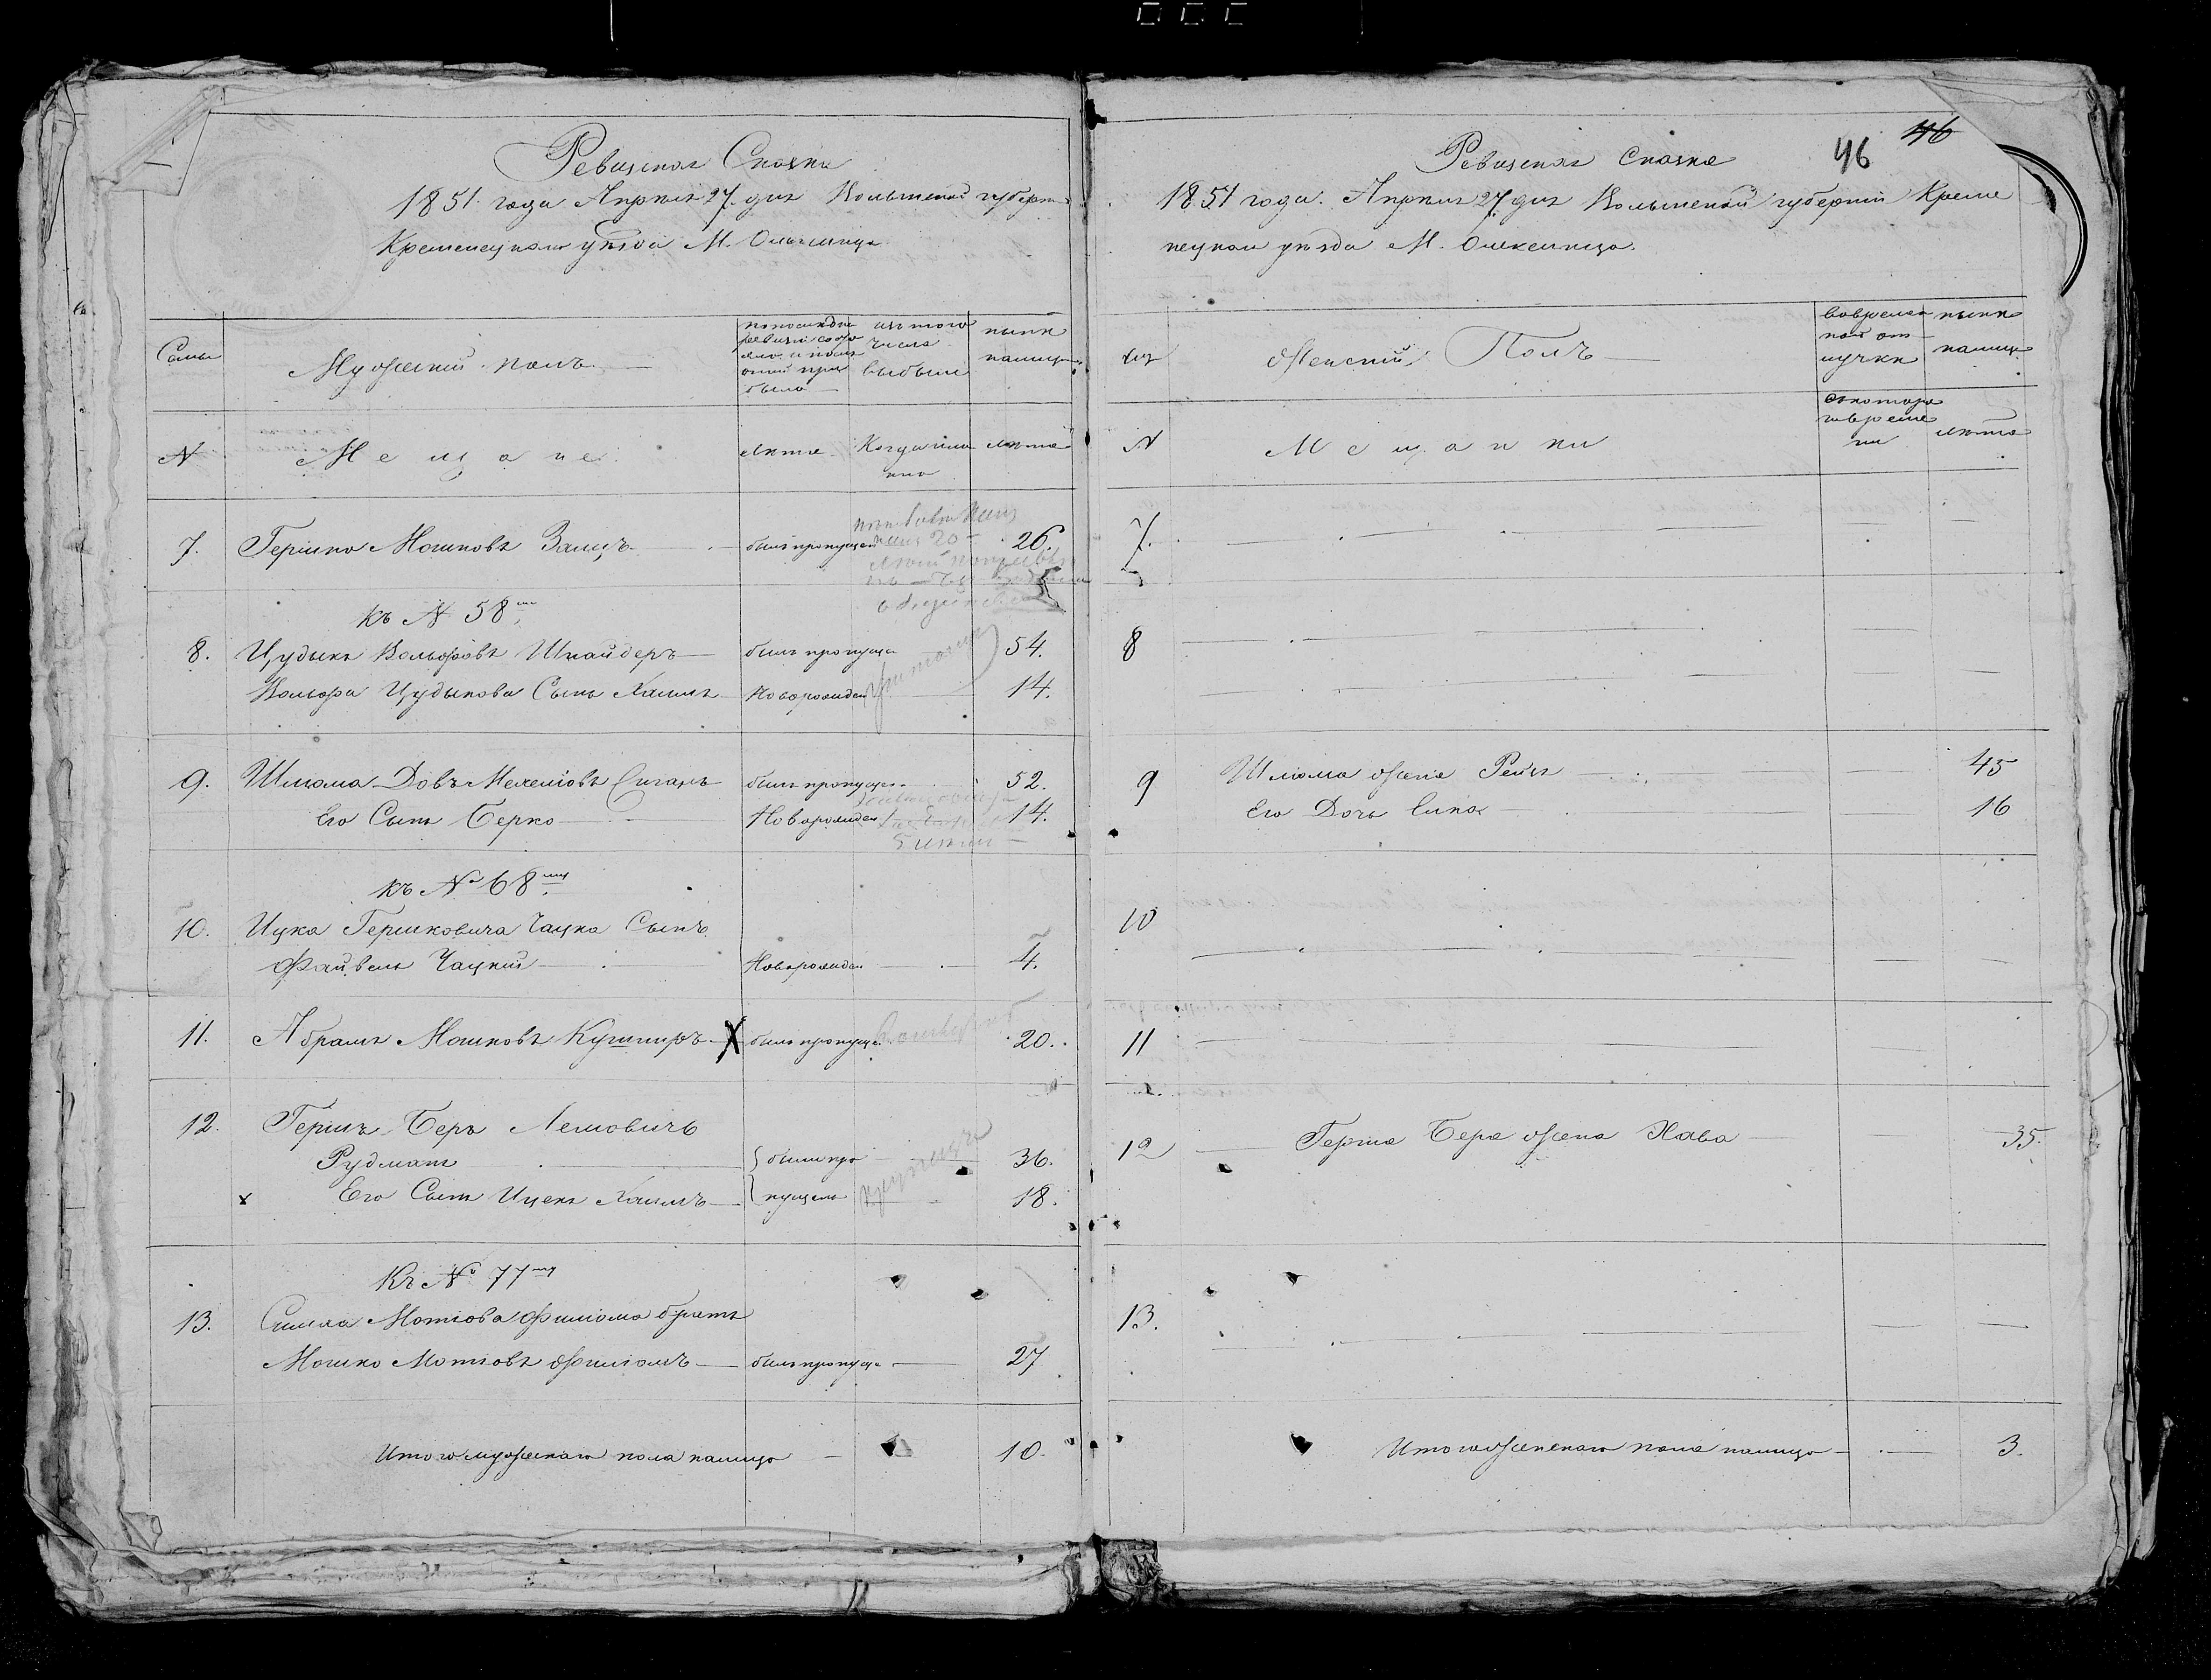 Ревизская Сказка
1851 года Апреля 27 дня Волынской губерн
Кременецкаго уезда М. Олексинца
Семьи
Мужеский полъ
по последней ревизіи состояло и после оной прибыло
изъ того числа выбыли
ныне на лицо
N
Мещане
Лета
Когда имянно
Лета
7. Гершко Мошковъ Залцъ былъ пропущен 26.
къ N 58му
8. Цудыкъ Вольфовъ Шнайдеръ былъ пропуще 54.
Вольфа Цудыкова Сынъ Хаимъ Новорожден 14.
9. Шлиома Довъ Мехелiовъ Сиганъ былъ пропущен 52.
Его Сынъ Берко Новорожден 14.
къ № 68му
10. Ицка Гершковича Чацка Сынъ
Файвель Чацкій Новорожден 4.
11. Абрамъ Мошковъ Кушниръ былъ пропуще 20.
12. Гершъ Беръ Лемовичъ
Рудманъ были про 36.
Его Сынъ Ицекъ Хаимъ пущены 18.
Къ № 77му
13. Симха Мотiова Фишiома братъ
Мошко Мотiовъ Фишiомъ былъ пропуще 27
Итого мужескаго пола налицо 10.
46
46
Ревизская Сказка
1851 года. Апреля 27 дня Волынской губерніи Креме
нецкаго уезда М. Олексинца.
Женскій Полъ
во временной отлучке
ныне на лице
N
Мещанки
съ котораго времени
Лета
7.
8
9 Шлиома жена Рейзя 45
Его Дочь Сипа 16
10
11
12 Герша Бера жена Хава 35.
13.
Итого женскаго пола налицо 3.